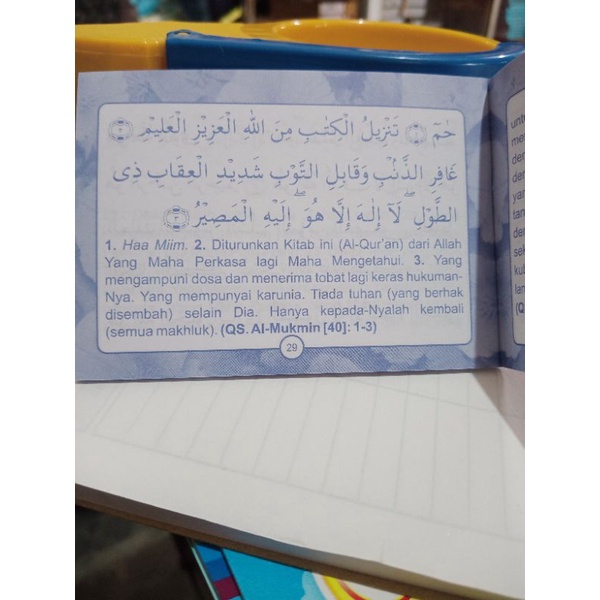 حٰمٓ ۝١ تَنْزِيْلُ الْكِتٰبِ مِنَ اللّٰهِ الْعَزِيْزِ الْعَلِيْمِ ۝٢
غَافِرِ الذَّنْۢبِ وَقَابِلِ التَّوْبِ شَدِيْدِ الْعِقَابِ ذِى
الطَّوْلِ ۗ لَآ اِلٰهَ اِلَّا هُوَ ۗ اِلَيْهِ الْمَصِيْرُ ۝٣
1. Haa Miim. 2. Diturunkan Kitab ini (Al-Qur'an) dari Allah
Yang Maha Perkasa lagi Maha Mengetahui. 3. Yang
mengampuni dosa dan menerima tobat lagi keras hukuman-
Nya. Yang mempunyai karunia. Tiada tuhan (yang berhak
disembah) selain Dia. Hanya kepada-Nyalah kembali
(semua makhluk). (QS. Al-Mukmin [40]: 1-3)
29